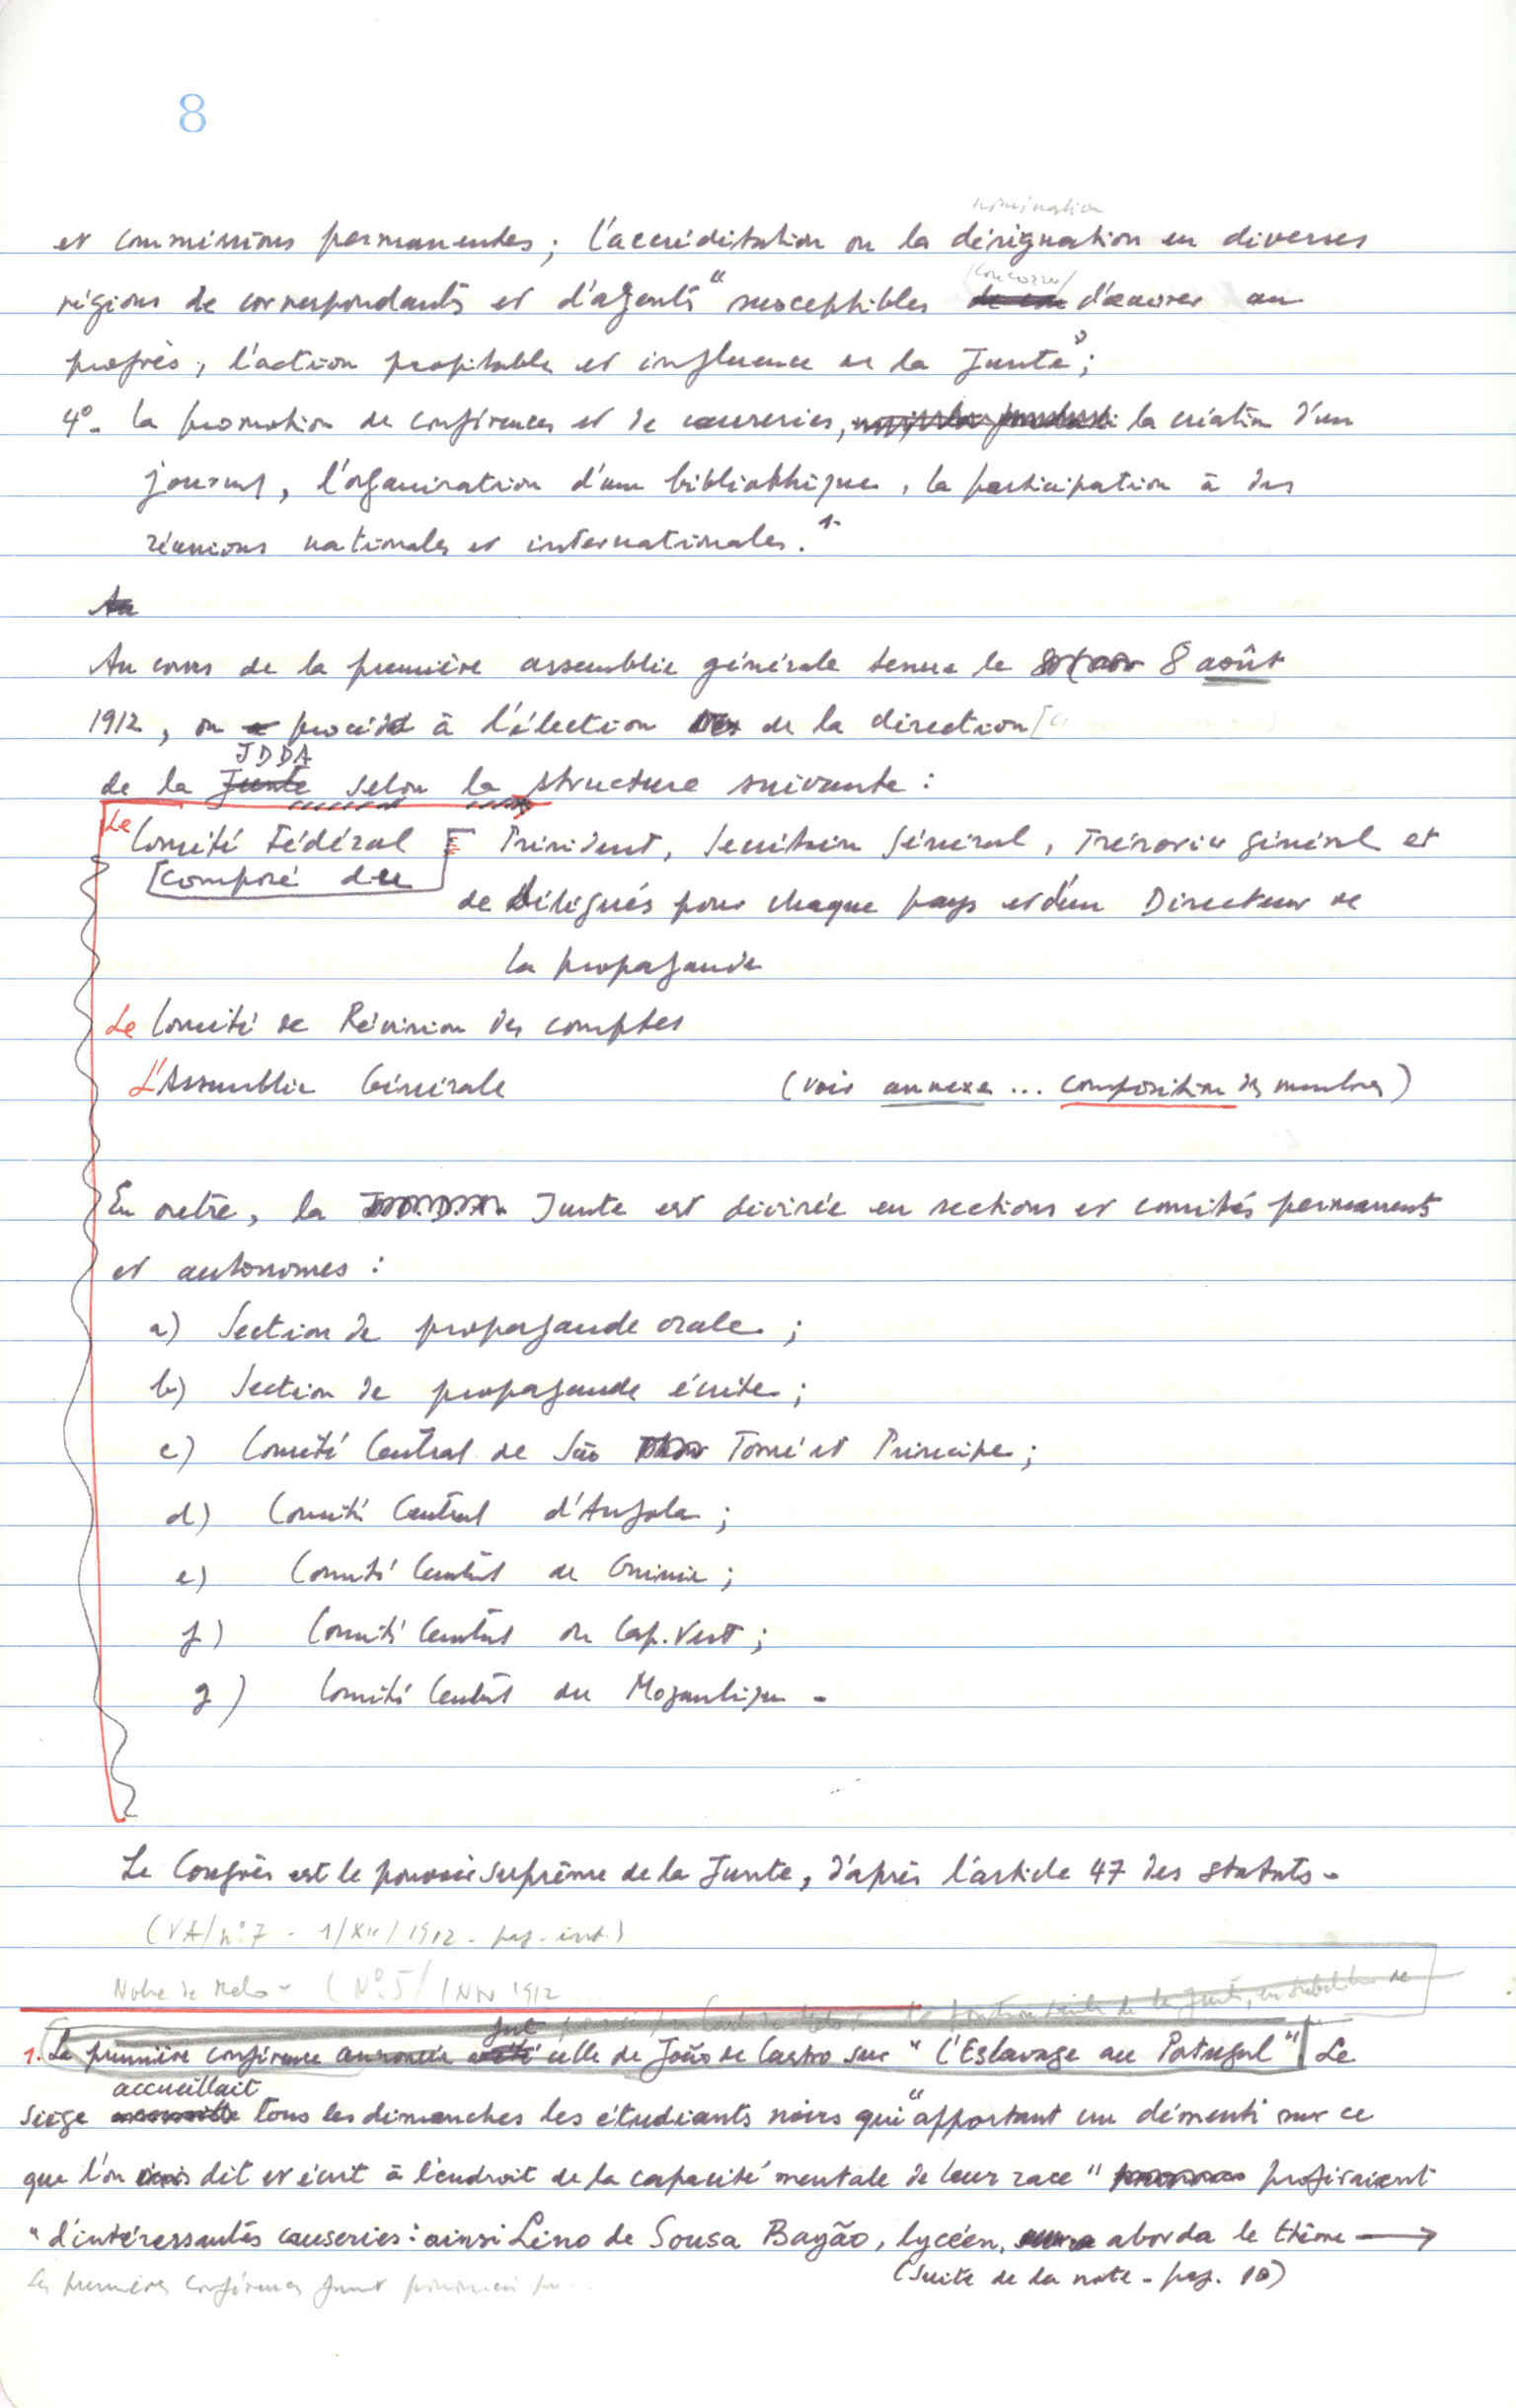 8
nomination
et commissions permanentes ; l'accréditation ou la désignation en diverses
régions de correspondants et d'agents " susceptibles d'œuvrer au
progrès, l'action profitable et influence de la Junte" ;
4º. la promotion de conférences et de causeries, la création d'un
journal, l'organisation d'une bibliothèque, la participation à des
réunions nationales et internationales. 1.
Au
Au cours de la première assemblée générale tenue le 8 août
1912, on procéda à l'élection de la direction
JDDA
de la Junte selon la structure suivante :
Le Comité Fédéral Président, Secrétaire Général, Trésorier général et
[composé du de Délégués pour chaque pays et d'un Directeur de
la propagande
Le Comité de Révision des comptes
L'Assemblée Générale (voir annexe ... composition des membres)
En outre, la Junte est divisée en sections et comités permanents
et autonomes :
a) Section de propagande orale ;
b) Section de propagande écrite ;
c) Comité Central de São Tomé et Principe ;
d) Comité Central d'Angola ;
e) Comité Central de Guinée ;
f) Comité Central du Cap. Vert ;
g) Comité Central du Mozambique -
Le Congrès est le pouvoir suprême de la Junte, d'après l'article 47 des statuts -
(VA/nº 7 - 1/XII/1912 - pag. int.)
Nobre de Melo - (Nº 5/ 1 Nov 1912
fut
1. La première conférence annoncée celle de João de Castro sur " l'Esclavage au Portugal" Le
accueillait
siège tous les dimanches les étudiants noirs qui "apportant un démenti sur ce
que l'on dit et écrit à l'endroit de la capacité mentale de leur race"
"d'intéressantes causeries : ainsi Lino de Sousa Bayão, lycéen, aborda le thème →
Les premières conférences furent
(suite de la note - pag. 10)